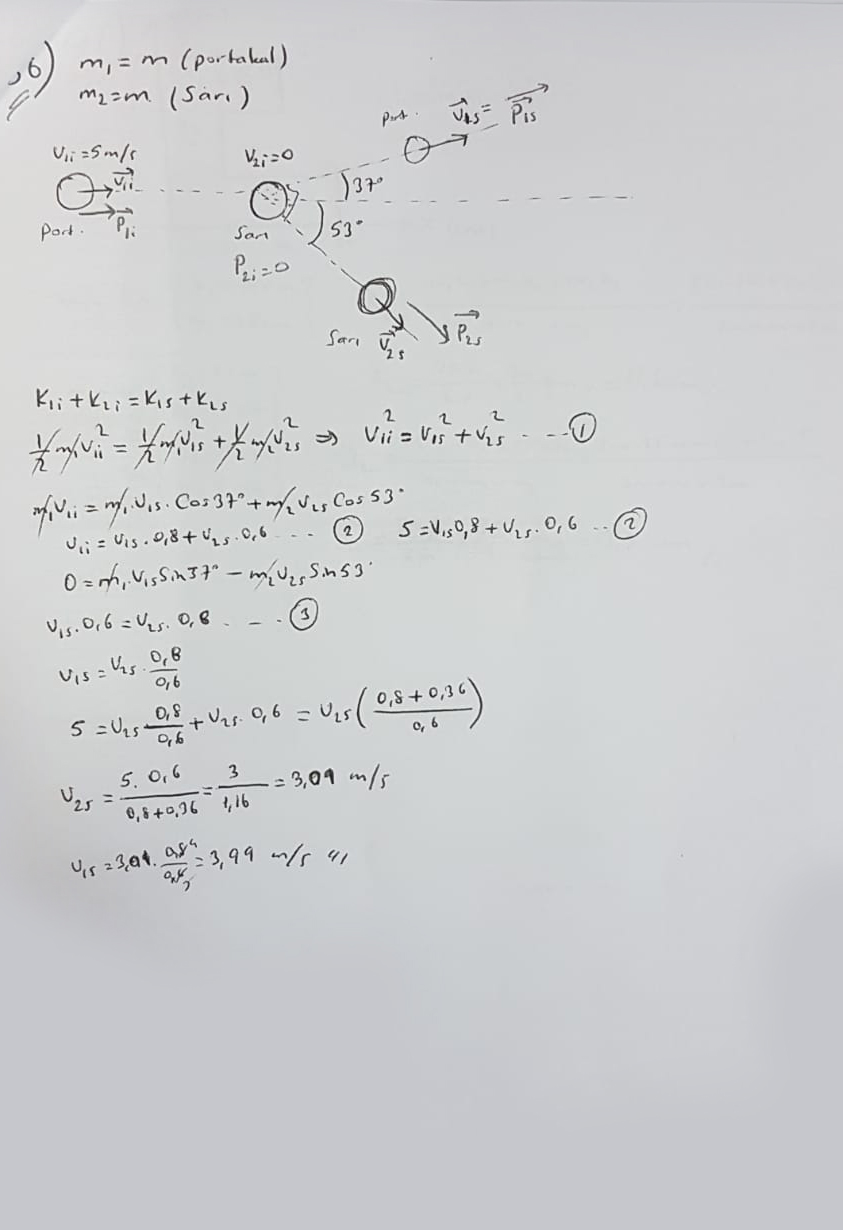 6) m₁ = m (portakal)
m₂ = m (Sarı)
port. v⃗₁ₛ = P⃗₁ₛ
V₁ᵢ = 5 m/s V₂ᵢ = 0
v⃗₁ᵢ 37°
Port. P⃗₁ᵢ Sarı 53°
P₂ᵢ = 0
Sarı v⃗₂ₛ P⃗₂ₛ
K₁ᵢ + K₂ᵢ = K₁ₛ + K₂ₛ
1/2 m₁v₁ᵢ² = 1/2 m₁v₁ₛ² + 1/2 m₂v₂ₛ² ⇒ V₁ᵢ² = V₁ₛ² + V₂ₛ² - - - ①
m₁V₁ᵢ = m₁.V₁ₛ. Cos37° + m₂V₂ₛ Cos53°
V₁ᵢ = V₁ₛ . 0,8 + V₂ₛ . 0,6 - - - ② 5 = V₁ₛ0,8 + V₂ₛ . 0,6 - - ②
0 = m₁.V₁ₛSin37° - m₂V₂ₛSin53°
V₁ₛ.0,6 = V₂ₛ. 0,8 - - - ③
V₁ₛ = V₂ₛ . 0,8/0,6
5 = V₂ₛ 0,8/0,6 + V₂ₛ. 0,6 = V₂ₛ ( (0,8 + 0,36)/0,6 )
V₂ₛ = 5. 0,6/(0,8 + 0,36) = 3/1,16 = 3,01 m/s
V₁ₛ = 3,01. 0,8⁴/0,6₃ = 3,99 m/s